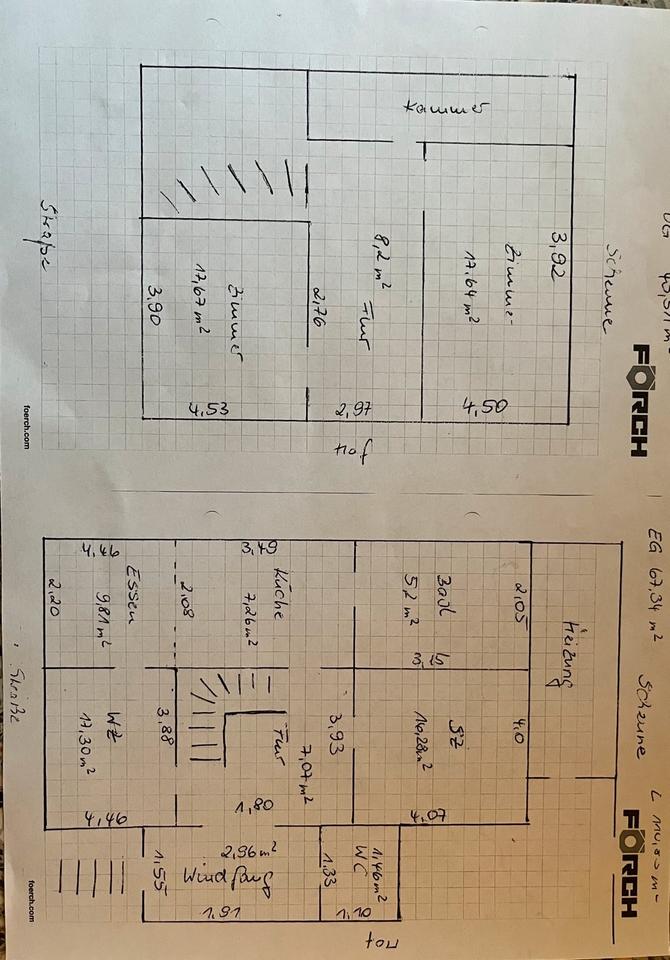 Kammer
Scheune
3,92
Zimmer
17.64 m²
4,50
8,2 m²
Flur
2,76
2,97
Zimmer
17,67 m²
3,90
4,53
Straße
Hof
FÖRCH
foerch.com
EG 67,34 m²
Scheune
FÖRCH
Heizung
2,05
Bad
5,2 m²
4,0
SZ
16,28 m²
4,07
3,49
Küche
7,26 m²
2,08
4,46
Essen
9,81 m²
2,20
3,93
Flur
7,07 m²
1,80
3,88
WZ
17,30 m²
4,46
2,96 m²
Windfang
1,55
1,91
1,33
WC
1,46 m²
1,10
Hof
Straße
foerch.com